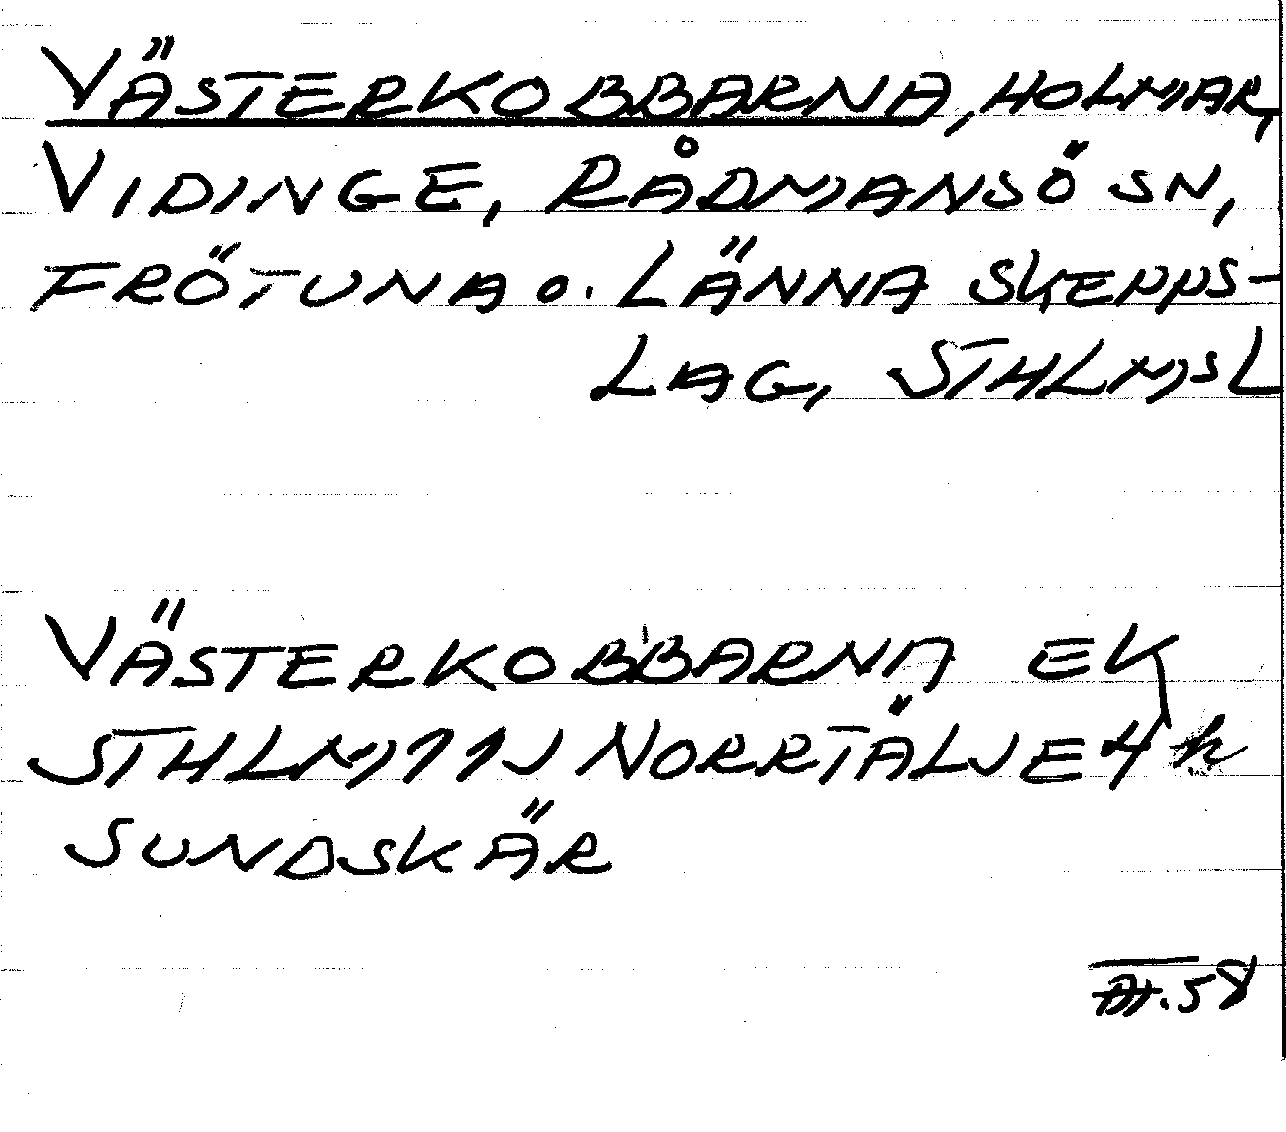 VÄSTERKOBBARNA, HOLMAR,
VIDINGE, RÅDMANSÖ SN,
FRÖTUNA o. LÄNNA SKEPPS-
LAG, STHLMSL
VÄSTERKOBBARNA EK
STHLM 11J NORRTÄLJE 4 h
SUNDSKÄR
.58